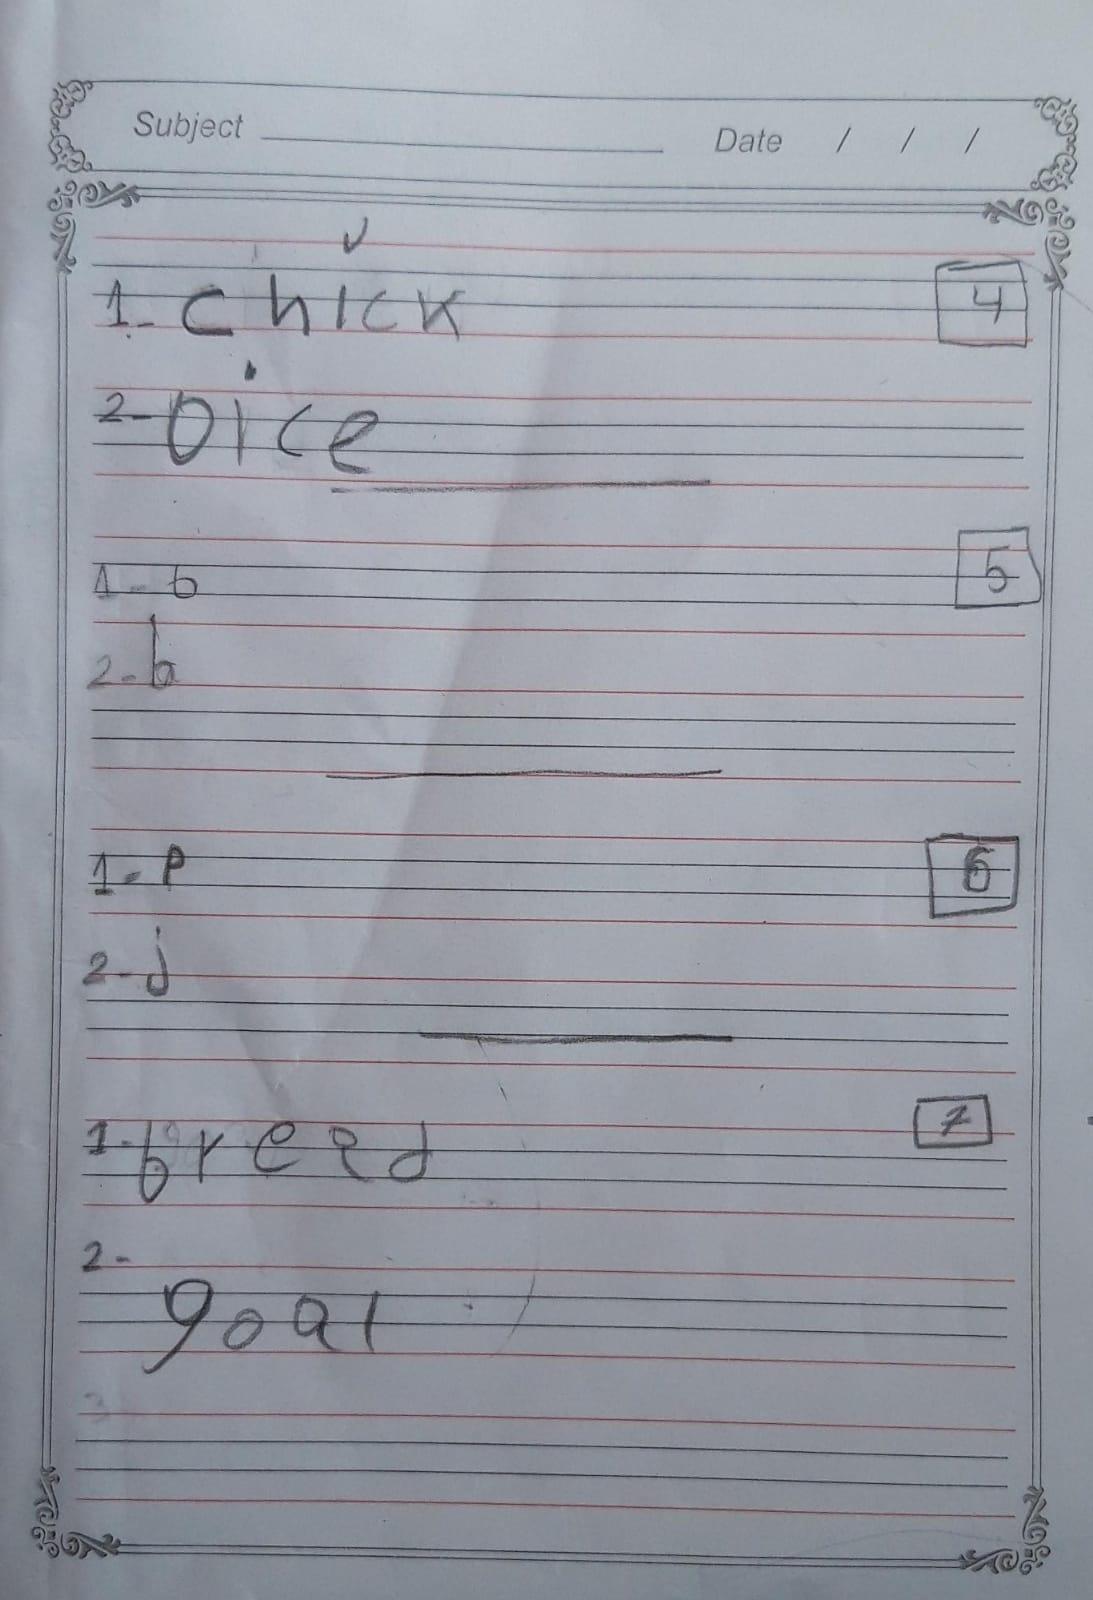 Subject Date / / /
1- chick 4
2- Dice
1- b 5
2- b
1- P 6
2- j
1- bread 7
2-
goal
3